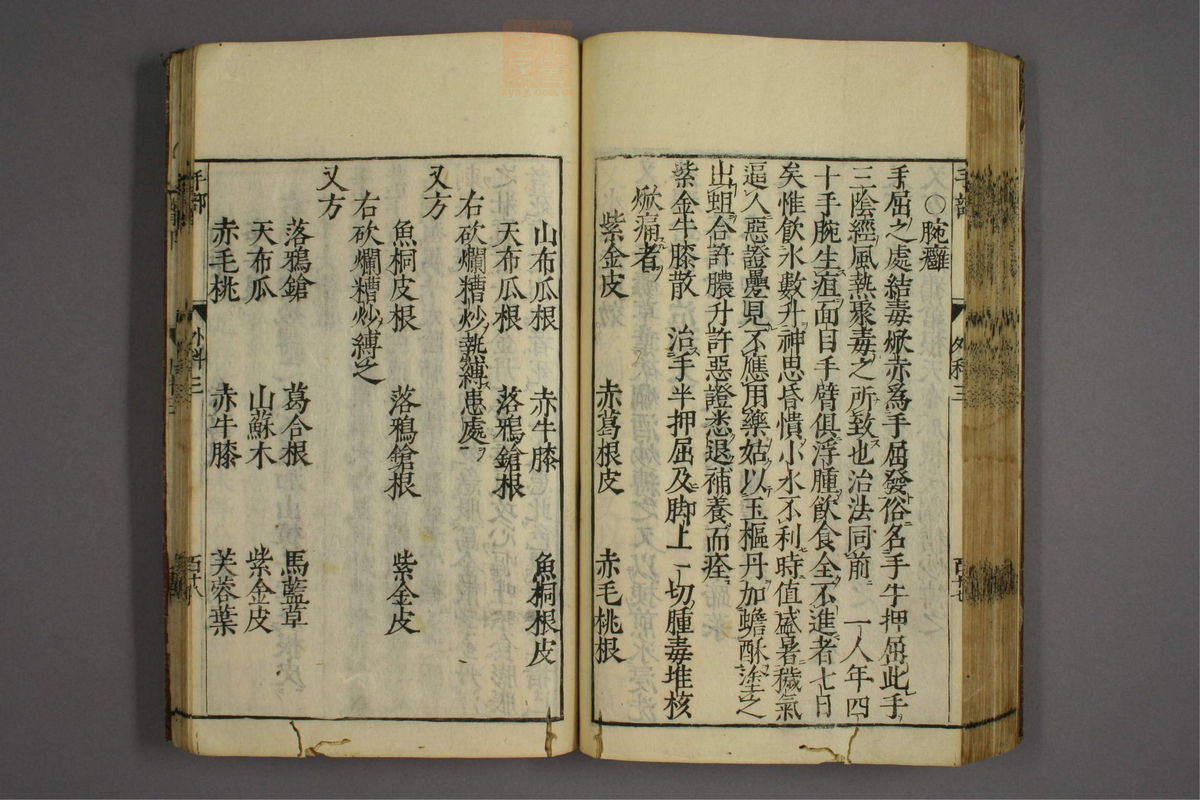 〇腕癰
手屈之處結毒焮赤爲手屈發俗名手牛押屈此手
三陰經風熱聚毒之所致也治法同前　一人年四
十手腕生疽面目手臂俱浮腫飲食全不進者七日
矣惟飲氷數升神思昏憒小水不利時值盛暑穢氣
逼人惡證疊見不應用藥姑以玉樞丹加蟾酥塗之
出蛆合許膿升許惡證悉退補養而痊
紫金牛膝散　治手半押屈及脚上一切腫毒堆核
焮痛者
紫金皮　赤葛根皮　赤毛桃根
山布瓜根　赤牛膝　魚桐根皮
天布瓜根　落鴉鎗根
右砍爛糟炒熱縛患處
又方
魚桐皮根　落鴉鎗根　紫金皮
右砍爛糟炒縛之
又方
落鴉鎗　葛合根　馬藍草
天布瓜　山蘇木　紫金皮
赤毛桃　赤牛膝　芙蓉葉
手部　外科三　百廿八